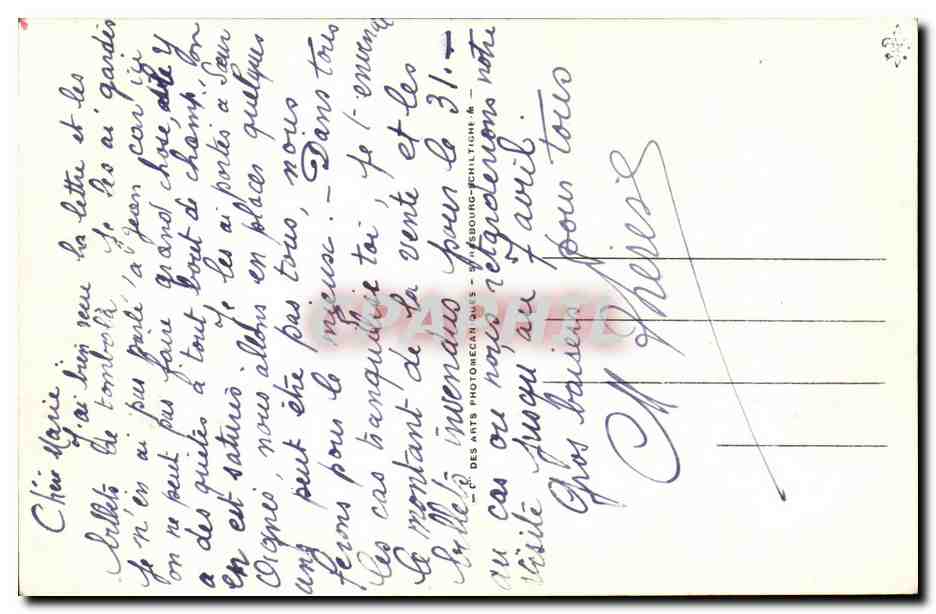 Chère Marie.
J'ai bien reçu ta lettre et les
billets de tombola. Je les ai gardés
Je n'en ai pas parlé à Jean car ici
on ne peut pas faire grand chose, il y
a des quêtes à tout bout de champ, on
en est saturés. Je les ai portés à Sœur
Oignies, nous allons en placer quelques
uns peut être pas tous, nous
ferons pour le mieux. - Dans tous
les cas tranquillise toi, je t'enverrai
le montant de la vente et les
billets invendus pour le 31. -
au cas où nous retarderions notre
visite jusqu'au 7 avril.
Gros baisers pour tous
M Thérèse
- Cie DES ARTS PHOTOMECANIQUES - STRASBOURG-SCHILTIGHEIM -
CPAPHIL